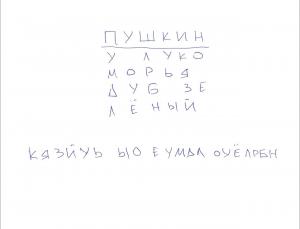 ПУШКИН
У ЛУКО
МОРЬЯ
ДУБ ЗЕ
ЛЁНЫЙ
КЯЗЙУЬ ЫО Е УМДЛ ОУЁЛРБН